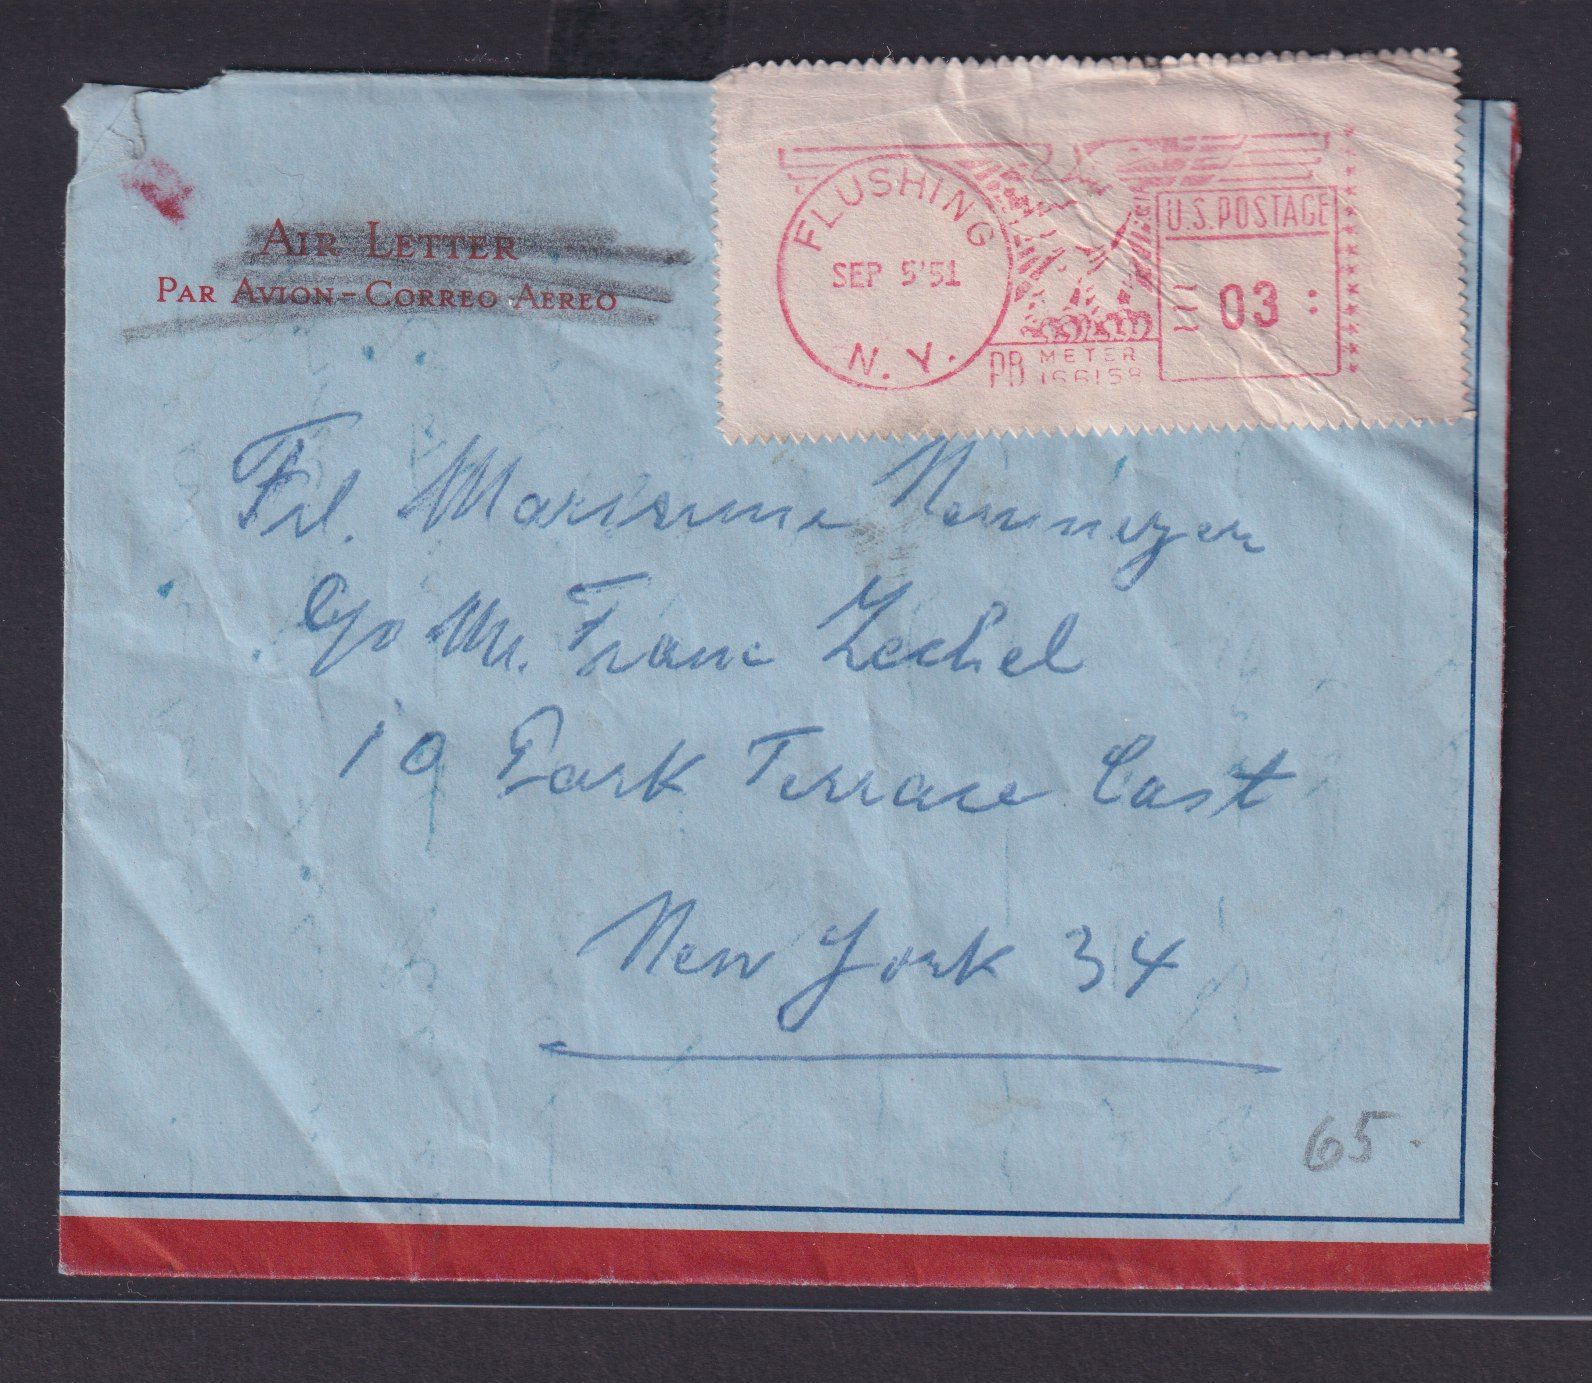 AIR LETTER
PAR AVION - CORREO AEREO
FLUSHING
SEP 5'51
N. Y.
U.S. POSTAGE
03
PB METER
166158
Frl. Marianne Neumeyer
c/o Mr. Franc Zechel
10 Park Terrace East
New York 34
65.